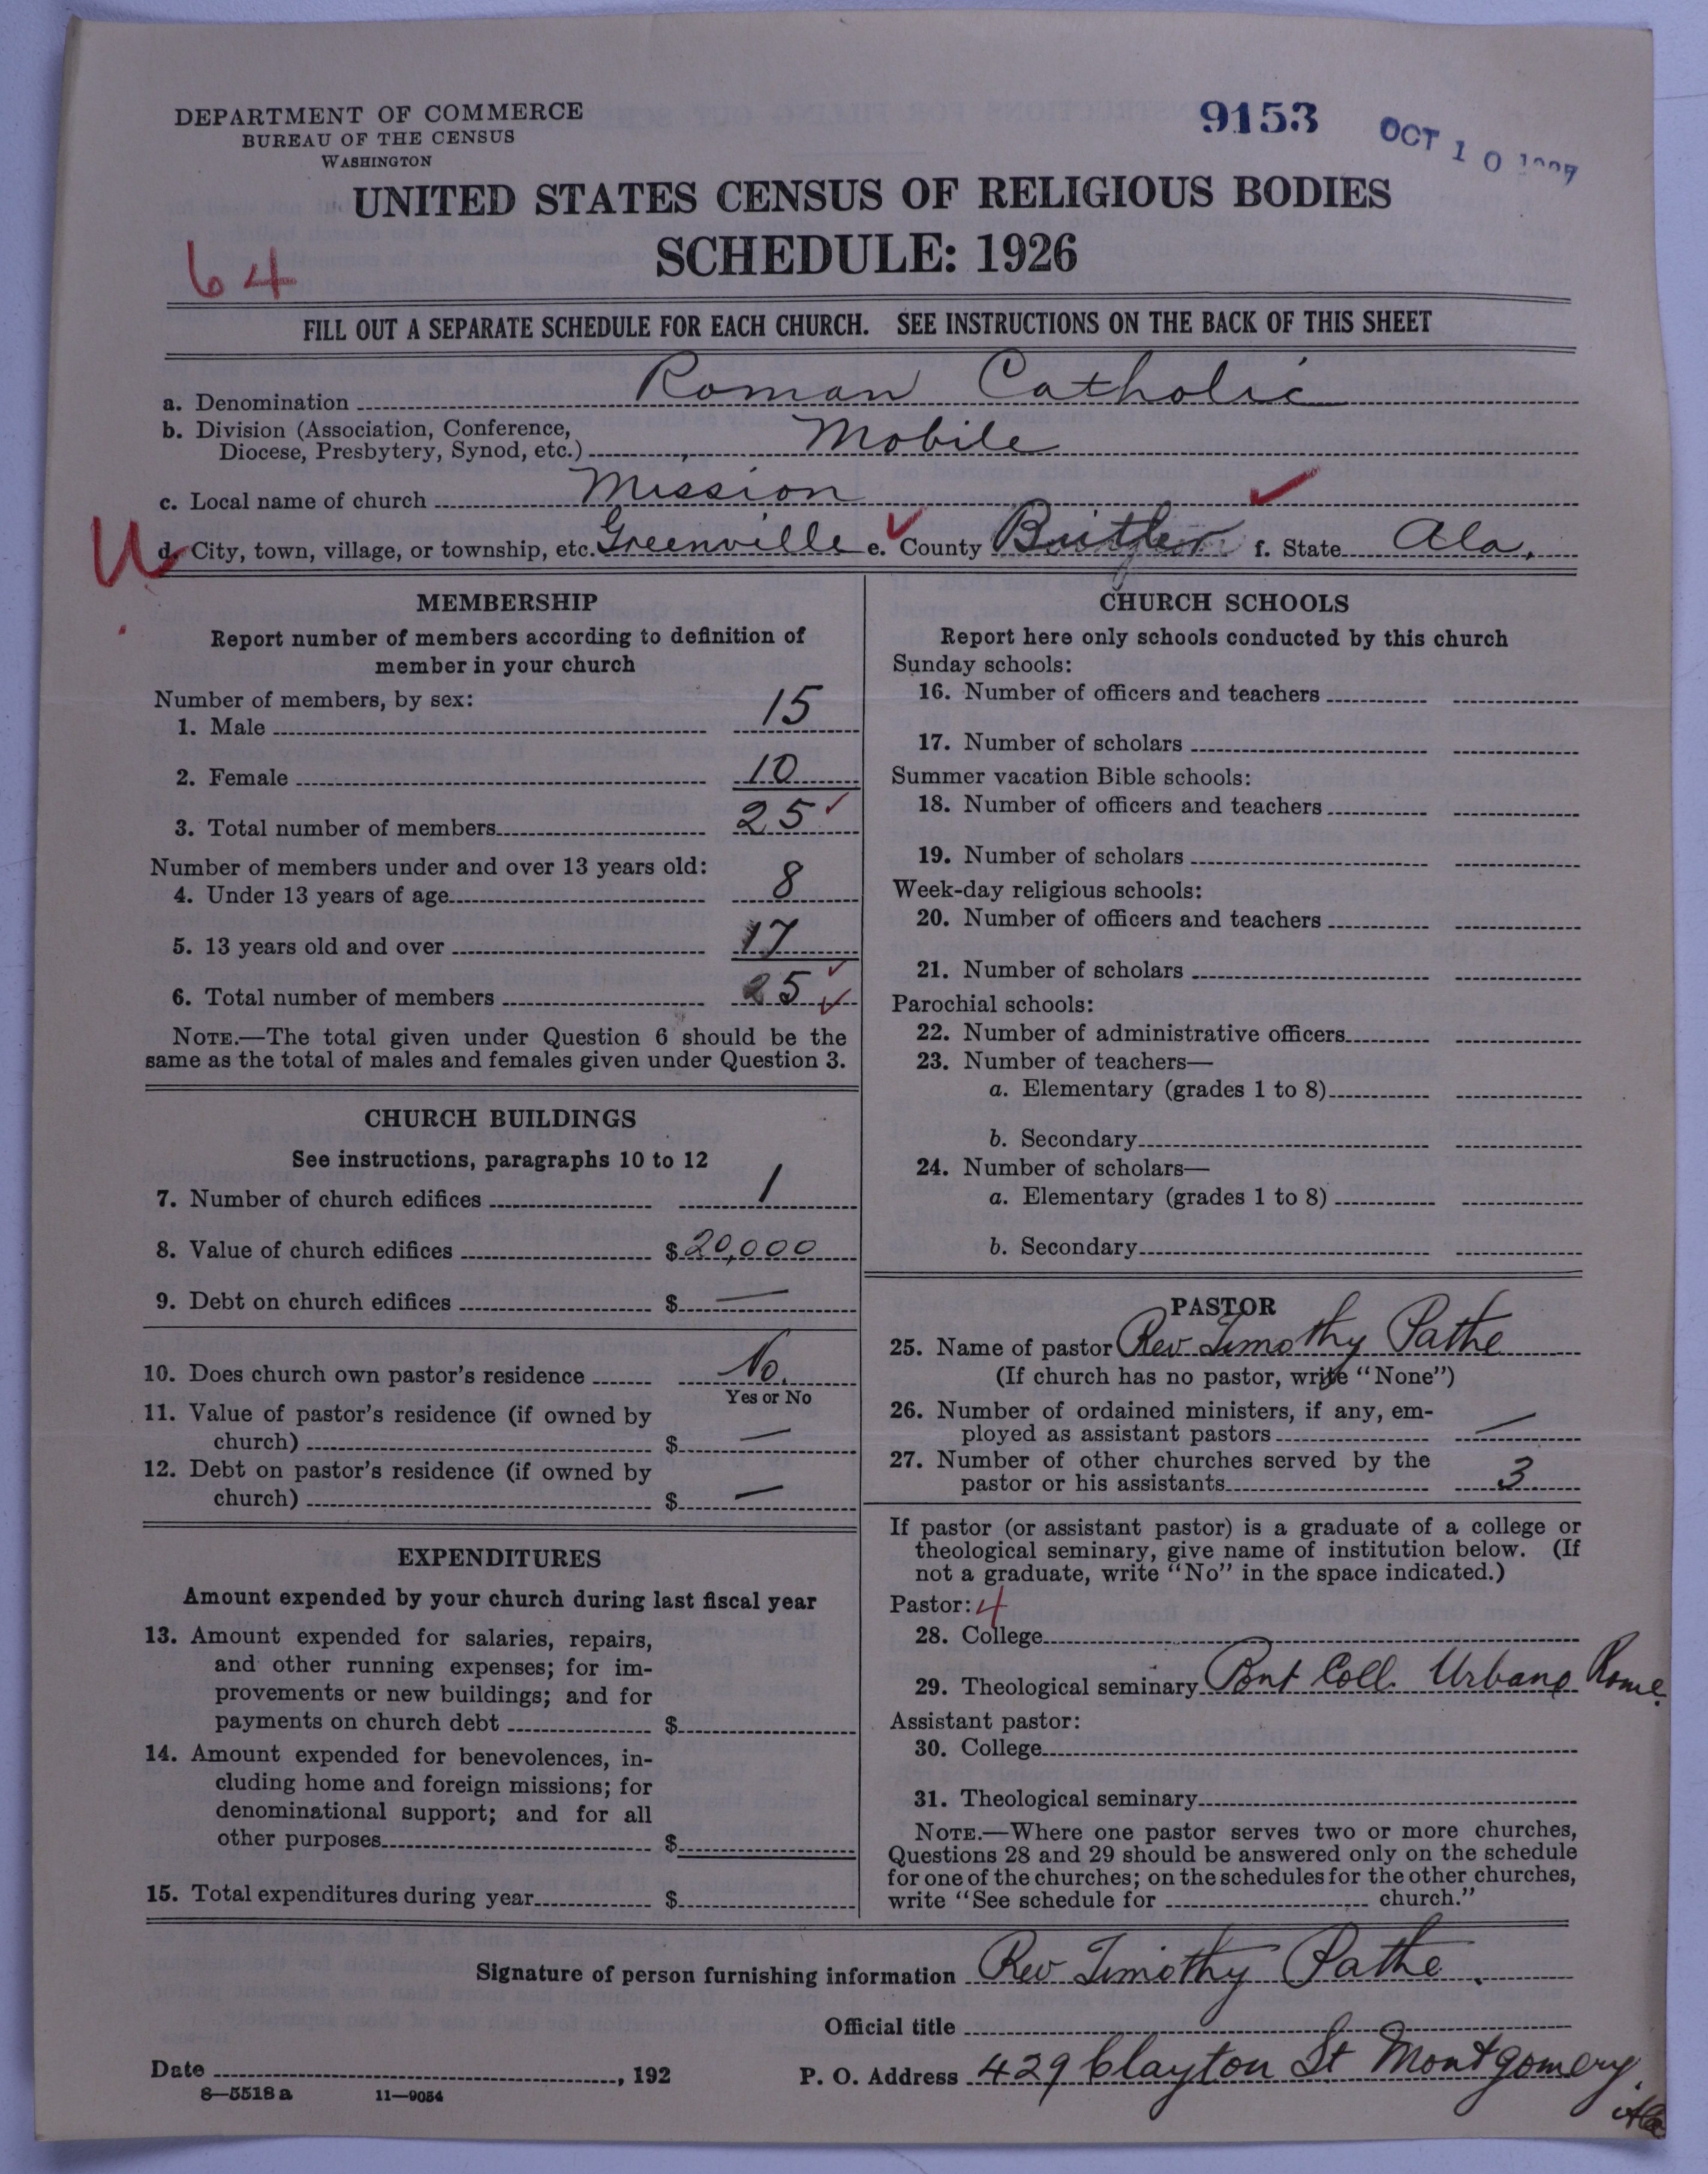 DEPARTMENT OF COMMERCE
BUREAU OF THE CENSUS
WASHINGTON
9153
OCT 10
UNITED STATES CENSUS OF RELIGIOUS BODIES
SCHEDULE: 1926
64
FILL OUT A SEPARATE SCHEDULE FOR EACH CHURCH. SEE INSTRUCTIONS ON THE BACK OF THIS SHEET
a. Denomination Roman Catholic
b. Division (Association, Conference,
Diocese, Presbytery, Synod, etc.) Mobile
c. Local name of church Mission
U d. City, town, village, or township, etc. Greenville e. County Butler f. State Ala.
MEMBERSHIP
Report number of members according to definition of
member in your church
Number of members, by sex:
1. Male 15
2. Female 10
3. Total number of members 25
Number of members under and over 13 years old:
4. Under 13 years of age 8
5. 13 years old and over 17
6. Total number of members 25
NOTE.—The total given under Question 6 should be the
same as the total of males and females given under Question 3.
CHURCH BUILDINGS
See instructions, paragraphs 10 to 12
7. Number of church edifices 1
8. Value of church edifices $ 20,000
9. Debt on church edifices $ —
10. Does church own pastor's residence No.
Yes or No
11. Value of pastor's residence (if owned by
church) $ —
12. Debt on pastor's residence (if owned by
church) $ —
EXPENDITURES
Amount expended by your church during last fiscal year
13. Amount expended for salaries, repairs,
and other running expenses; for im-
provements or new buildings; and for
payments on church debt $
14. Amount expended for benevolences, in-
cluding home and foreign missions; for
denominational support; and for all
other purposes $
15. Total expenditures during year $
CHURCH SCHOOLS
Report here only schools conducted by this church
Sunday schools:
16. Number of officers and teachers
17. Number of scholars
Summer vacation Bible schools:
18. Number of officers and teachers
19. Number of scholars
Week-day religious schools:
20. Number of officers and teachers
21. Number of scholars
Parochial schools:
22. Number of administrative officers
23. Number of teachers—
a. Elementary (grades 1 to 8)
b. Secondary
24. Number of scholars—
a. Elementary (grades 1 to 8)
b. Secondary
PASTOR
25. Name of pastor Rev Timothy Pathe
(If church has no pastor, write "None")
26. Number of ordained ministers, if any, em-
ployed as assistant pastors —
27. Number of other churches served by the
pastor or his assistants 3
If pastor (or assistant pastor) is a graduate of a college or
theological seminary, give name of institution below. (If
not a graduate, write "No" in the space indicated.)
Pastor: 4
28. College
29. Theological seminary Pont Coll. Urbano Rome.
Assistant pastor:
30. College
31. Theological seminary
NOTE.—Where one pastor serves two or more churches,
Questions 28 and 29 should be answered only on the schedule
for one of the churches; on the schedules for the other churches,
write "See schedule for church."
Signature of person furnishing information Rev Timothy Pathe.
Official title
Date , 192
P. O. Address 429 Clayton St Montgomery.
Ala
8—5518 a 11—9054